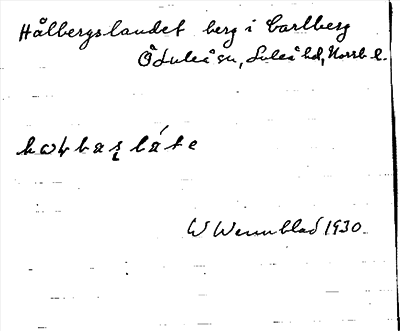 Hålbergslandet berg i Carlberg
ÖLuleå sn, Luleå hd, Norrb l.
W Wennblad 1930.